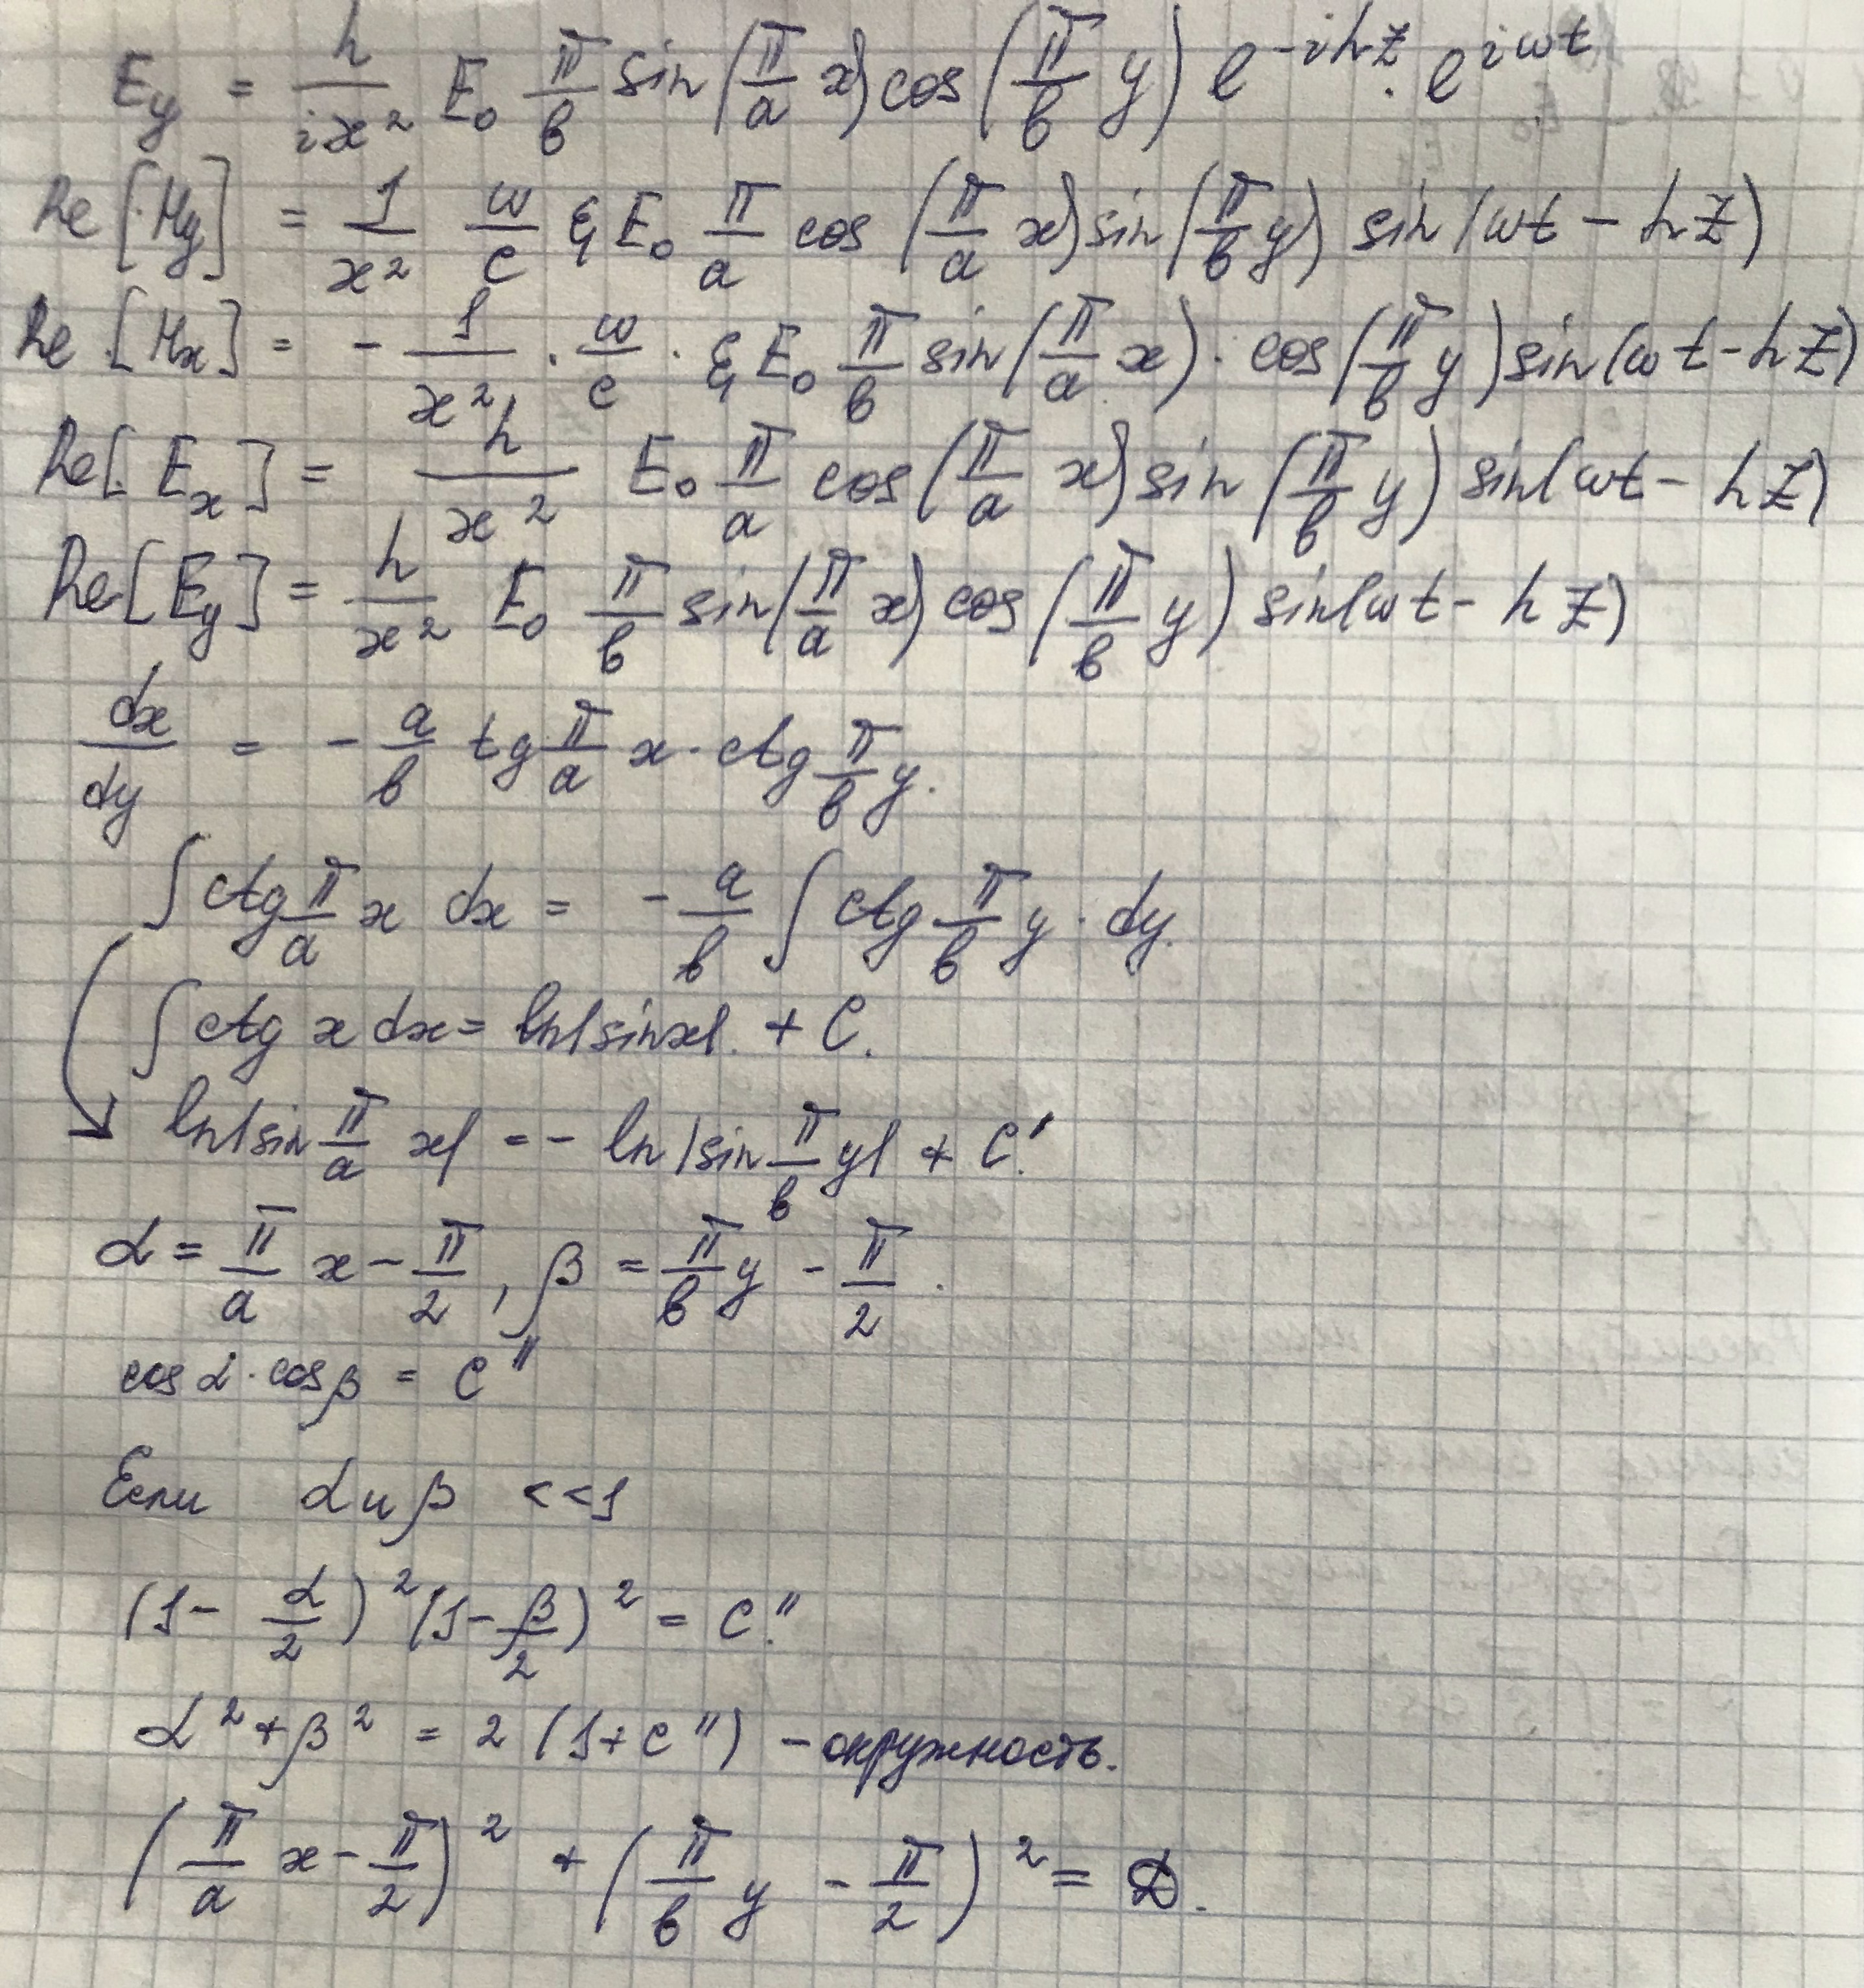 Ey = h/(iæ²) E₀ π/в sin(π/a x) cos(π/в y) e^(-ihz) · e^(iωt)
Re[Hy] = 1/æ² ω/c ε₁ E₀ π/a cos(π/a x) sin(π/в y) sin(ωt - hz)
Re[Hx] = - 1/æ² · ω/c · ε₁ E₀ π/в sin(π/a x) · cos(π/в y) sin(ωt - hz)
Re[Ex] = h/æ² E₀ π/a cos(π/a x) sin(π/в y) sin(ωt - hz)
Re[Ey] = h/æ² E₀ π/в sin(π/a x) cos(π/в y) sin(ωt - hz)
dx/dy = - a/в tg π/a x · ctg π/в y.
∫ ctg π/a x dx = - a/в ∫ ctg π/в y · dy.
∫ ctg x dx = ln|sin x|. + C.
ln|sin π/a x| = - ln|sin π/в y| + C'.
α = π/a x - π/2, β = π/в y - π/2.
cos α · cos β = C''
Если α и β <<1
(1 - α/2)² (1 - β/2)² = C''.
α² + β² = 2 (1 + C'') - окружность.
(π/a x - π/2)² + (π/в y - π/2)² = D.